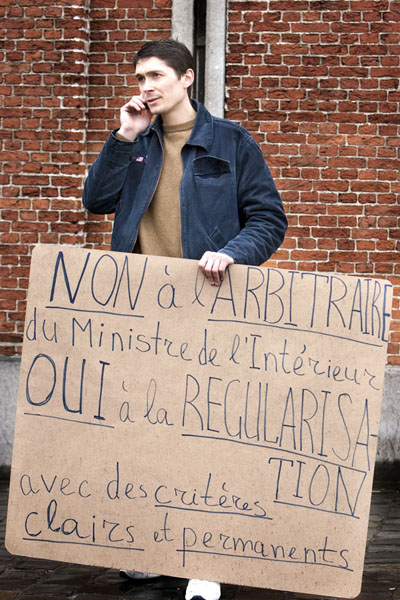 NON à l'ARBITRAIRE
du Ministre de l'Intérieur
OUI à la RÉGULARISA-
TION
avec des critères
clairs et permanents